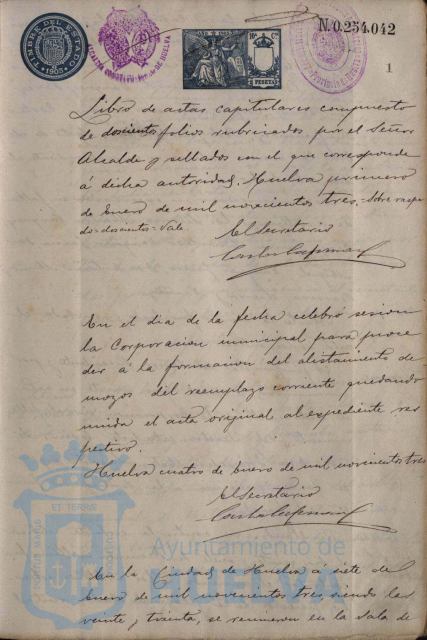 TIMBRE DEL ESTADO
1903
N.0.254.042
AÑO DE 1903
10ª Cª
2 PESETAS
1
Libro de actas capitulares compuesto
de doscientos folios rubricados por el Señor
Alcalde y sellados con el que corresponde
á dicha autoridad. Huelva primero
de Enero de mil novecientos tres. Sobre raspa
do=doscientos=Vale
El Secretario
En el dia de la fecha celebró sesion
la Corporacion municipal para proce
der á la formacion del alistamiento de
mozos del reemplazo corriente quedando
unida el acta original al expediente res
pectivo.
Huelva cuatro de Enero de mil novecientos tres
El Secretario
En la Ciudad de Huelva á siete de
Enero de mil novecientos tres, siendo las
veinte y treinta, se reunieron en la Sala de
Ayuntamiento de
HUELVA